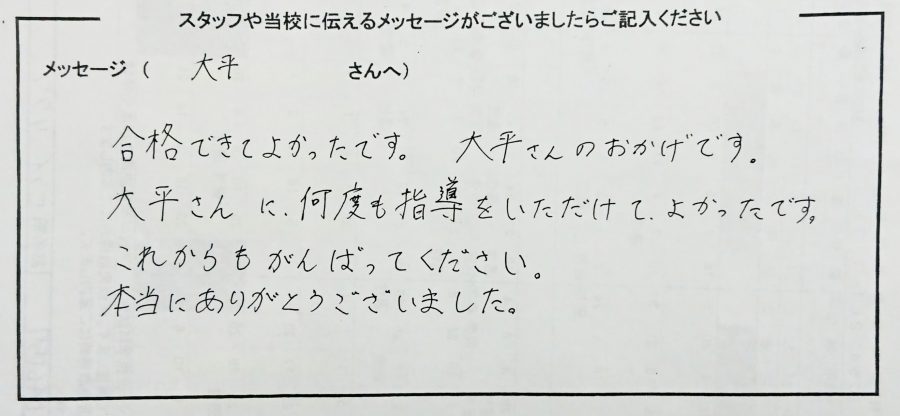 スタッフや当校に伝えるメッセージがございましたらご記入ください
メッセージ（ 大平 さんへ）
合格できてよかったです。 大平さんのおかげです。
大平さんに、何度も指導をいただけて、よかったです。
これからもがんばってください。
本当にありがとうございました。